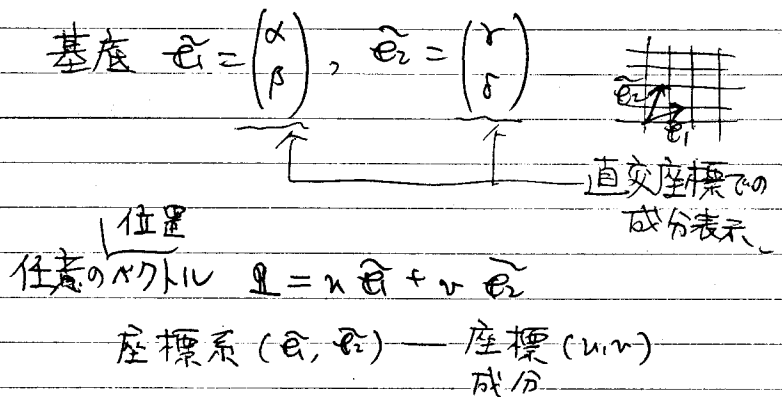 基底 ẽ₁ = (α β), ẽ₂ = (γ δ)
ẽ₂
ẽ₁
直交座標での
成分表示
位置
任意のベクトル 𝕢 = u ẽ₁ + v ẽ₂
座標系 (ẽ₁, ẽ₂) — 座標 (u, v)
成分